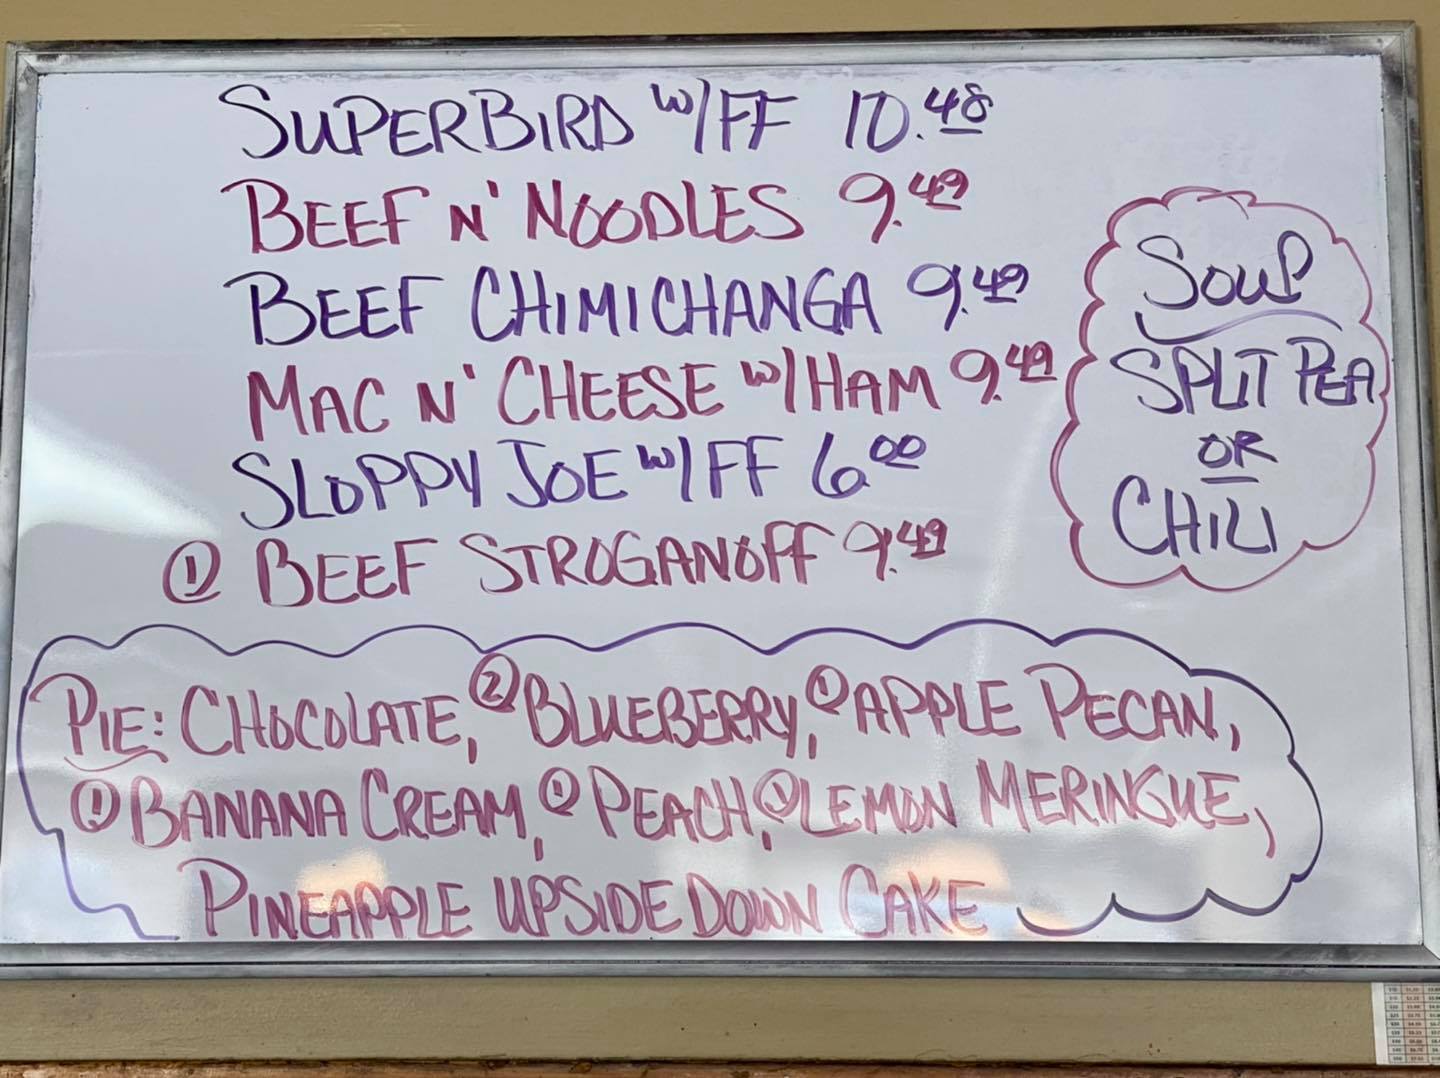 SUPERBIRD W/FF 10.48
BEEF N' NOODLES 9.49
BEEF CHIMICHANGA 9.49
MAC N' CHEESE W/HAM 9.49
SLOPPY JOE W/FF 6.00
① BEEF STROGANOFF 9.49
SOUP
SPLIT PEA
OR
CHILI
PIE: CHOCOLATE, ② BLUEBERRY, ① APPLE PECAN,
① BANANA CREAM, ① PEACH, ① LEMON MERINGUE,
PINEAPPLE UPSIDE DOWN CAKE